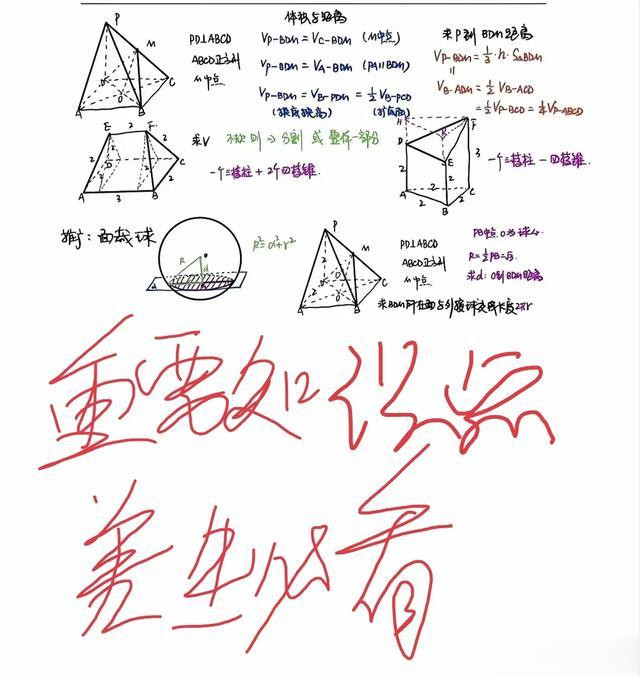 体积与距离
PD⊥ABCD
ABCD正方形
M中点
V_{P-BDM}=V_{C-BDM} (M中点)
V_{P-BDM}=V_{A-BDM} (PA∥BDM)
V_{P-BDM}=V_{B-PDM}=½V_{B-PCD}
(换底换高) (扩底面)
求P到BDM距离
V_{P-BDM}=⅓·h·S_{△BDM}
‖
V_{B-ADM}=½V_{B-ACD}
=½V_{P-BCD}=¼V_{P-ABCD}
P
M
D
C
O
A
B
E 2 F
2
2
2
D
C
2
A 3 B
求V 不规则→分割 或 整体-部分
一个三棱柱+2个四棱锥.
H
F
D
E
3
A 2 C
2 2
B
一个三棱柱-四棱锥.
推广:面截球
R
d
R²=d²+r²
P
M
2
D
C
O
A
B
PD⊥ABCD
ABCD正方形
M中点
求BDM所在面与外接球交线长度2πr
PB中点O为球心.
R=½PB=√3.
求d:O到BDM距离
重要知识点
差生必看